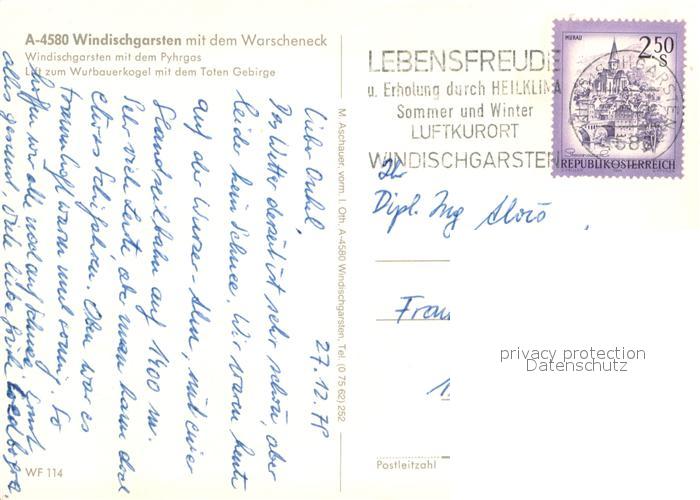 A-4580 Windischgarsten mit dem Warscheneck
Windischgarsten mit dem Pyhrgas
Lift zum Wurbauerkogel mit dem Toten Gebirge
M. Aschauer, vorm. I. Oth. A-4580 Windischgarsten, Tel. (0 75 62) 252
27.12.78
Lieber Onkel,
Das Wetter derzeit ist sehr schön, aber
leider kein Schnee. Wir waren heute
auf der Wurzer-Alm, mit einer
Standseilbahn auf 1400 m.
Sehr viele Leute, aber man kann doch
etwas Schifahren. Oben war es
traumhaft warm und sonnig. So
hoffen wir alle noch auf Schnee. Sonst
alles gesund. Viele liebe Grüße
WF 114
LEBENSFREUDE
u. Erholung durch HEILKLIMA
Sommer und Winter
LUFTKURORT
WINDISCHGARSTEN
MURAU
2.50
S
REPUBLIK ÖSTERREICH
Dipl. Ing Alois
privacy protection
Datenschutz
Postleitzahl